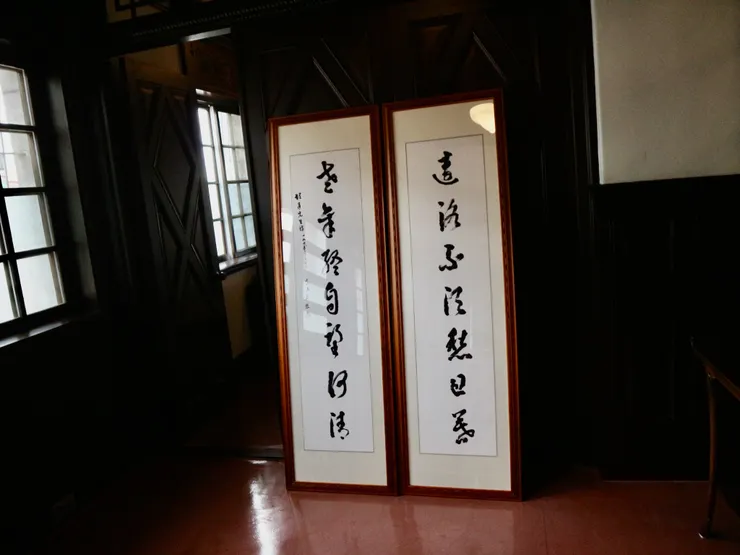 遠路不須愁日暮
老年終自望河清